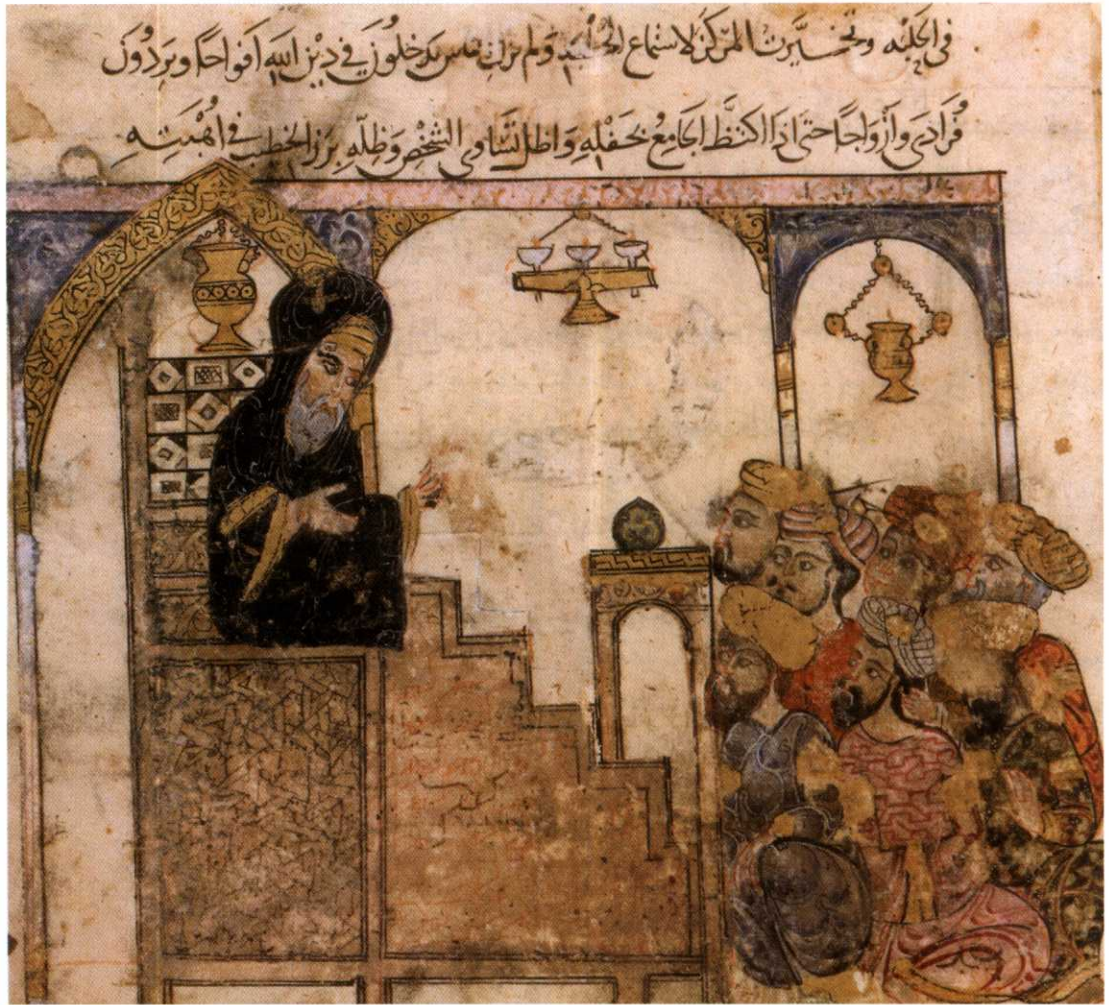 في الحلبه وتخيّرت المركز لاستماع الخطبه ولم يزل الناس يدخلون في دين الله افواجًا ويردُونَ
فُرادى وأزْواجًا حتى اذا اكتظَّ الجامعُ بحفلِهِ واظلّ تساوي الشخص وَظلّهِ برز الخطيب في أُهْبَتِهِ